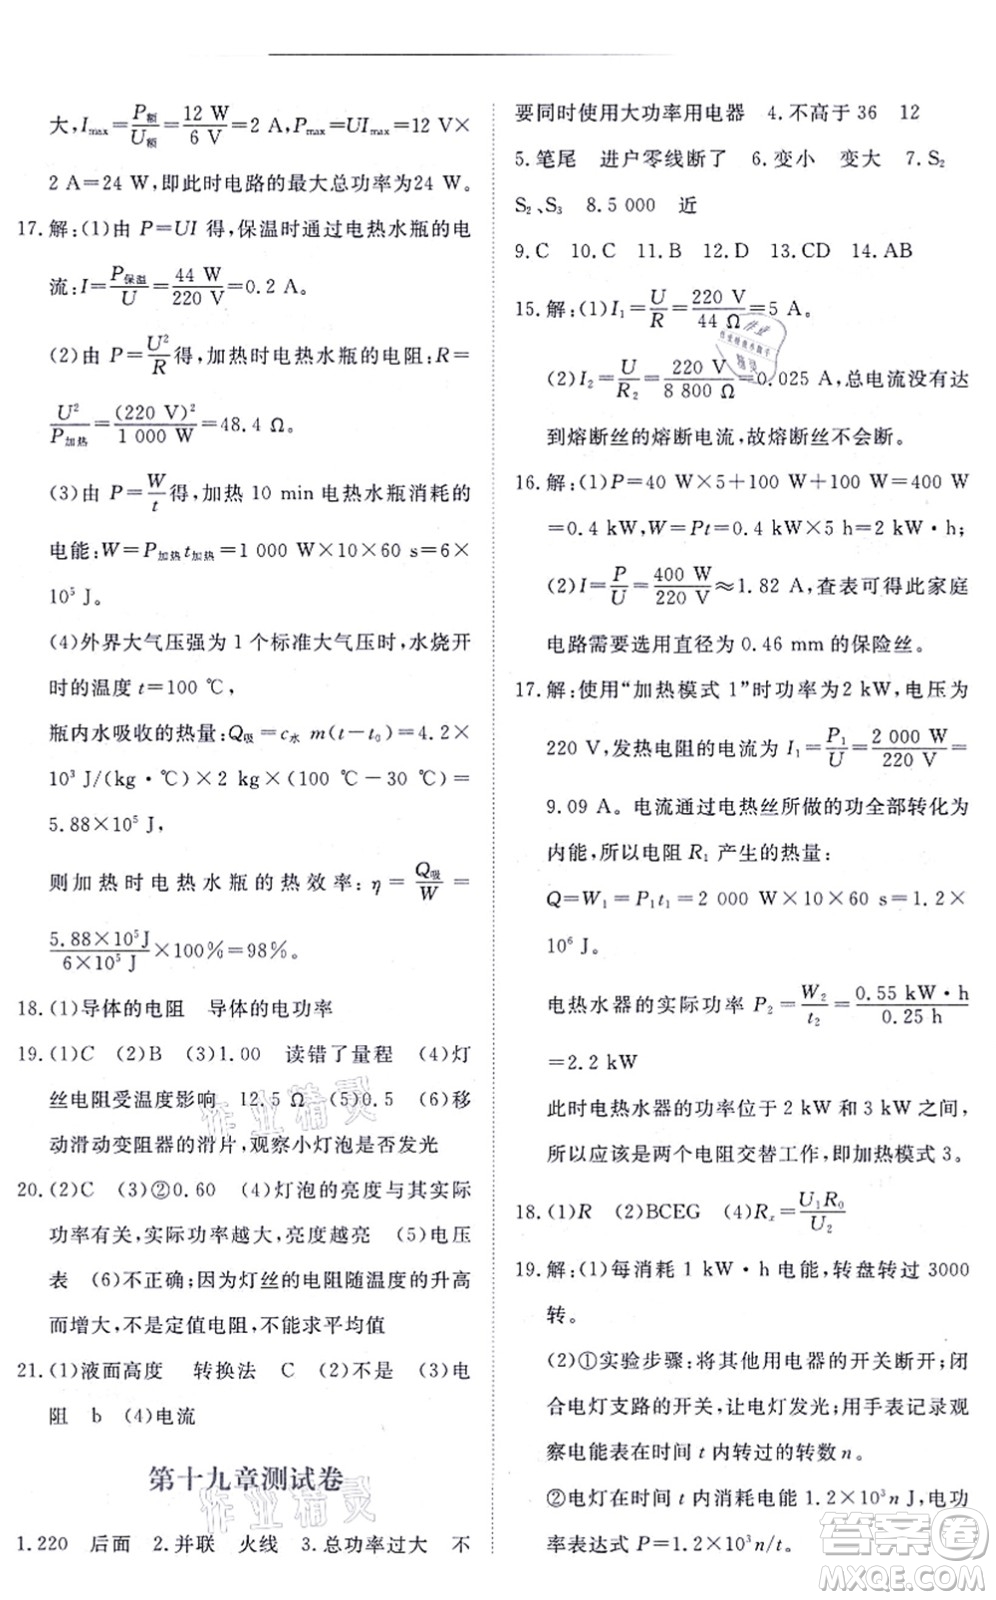 大,I_max=P_额/U_额=12 W/6 V=2 A,P_max=UI_max=12 V×
2 A=24 W,即此时电路的最大总功率为24 W。
17.解:(1)由 P=UI 得,保温时通过电热水瓶的电
流:I=P_保温/U=44 W/220 V=0.2 A。
(2)由 P=U²/R得,加热时电热水瓶的电阻:R=
U²/P_加热=(220 V)²/1 000 W=48.4 Ω。
(3)由 P=W/t得,加热 10 min 电热水瓶消耗的
电能:W=P_加热t_加热=1 000 W×10×60 s=6×
10⁵ J。
(4)外界大气压强为 1 个标准大气压时,水烧开
时的温度 t=100 ℃,
瓶内水吸收的热量:Q_吸=c_水 m(t-t₀)=4.2×
10³ J/(kg·℃)×2 kg×(100 ℃-30 ℃)=
5.88×10⁵ J,
则加热时电热水瓶的热效率:η=Q_吸/W=
5.88×10⁵J/6×10⁵J×100%=98%。
18.(1)导体的电阻 导体的电功率
19.(1)C (2)B (3)1.00 读错了量程 (4)灯
丝电阻受温度影响 12.5 Ω (5)0.5 (6)移
动滑动变阻器的滑片,观察小灯泡是否发光
20.(2)C (3)②0.60 (4)灯泡的亮度与其实际
功率有关,实际功率越大,亮度越亮 (5)电压
表 (6)不正确;因为灯丝的电阻随温度的升高
而增大,不是定值电阻,不能求平均值
21.(1)液面高度 转换法 C (2)不是 (3)电
阻 b (4)电流
第十九章测试卷
1.220 后面 2.并联 火线 3.总功率过大 不
要同时使用大功率用电器 4.不高于 36 12
5.笔尾 进户零线断了 6.变小 变大 7.S₂
S₂、S₃ 8.5 000 近
9.C 10.C 11.B 12.D 13.CD 14.AB
15.解:(1)I₁=U/R=220 V/44 Ω=5 A。
(2)I₂=U/R₂=220 V/8 800 Ω=0.025 A,总电流没有达
到熔断丝的熔断电流,故熔断丝不会断。
16.解:(1)P=40 W×5+100 W+100 W=400 W
=0.4 kW,W=Pt=0.4 kW×5 h=2 kW·h;
(2)I=P/U=400 W/220 V≈1.82 A,查表可得此家庭
电路需要选用直径为 0.46 mm的保险丝。
17.解:使用“加热模式 1”时功率为2 kW,电压为
220 V,发热电阻的电流为 I₁=P₁/U=2 000 W/220 V=
9.09 A。电流通过电热丝所做的功全部转化为
内能,所以电阻 R₁ 产生的热量:
Q=W₁=P₁t₁=2 000 W×10×60 s=1.2×
10⁶ J。
电热水器的实际功率 P₂=W₂/t₂=0.55 kW·h/0.25 h
=2.2 kW
此时电热水器的功率位于 2 kW 和 3 kW 之间,
所以应该是两个电阻交替工作,即加热模式 3。
18.(1)R (2)BCEG (4)Rₓ=U₁R₀/U₂
19.解:(1)每消耗 1 kW·h 电能,转盘转过 3000
转。
(2)①实验步骤:将其他用电器的开关断开;闭
合电灯支路的开关,让电灯发光;用手表记录观
察电能表在时间 t 内转过的转数 n。
②电灯在时间 t 内消耗的电能 1.2×10³n J,功
率表达式 P=1.2×10³n/t。
作业精灵
作业精灵
作业
精灵
答案圈
MXQE.COM